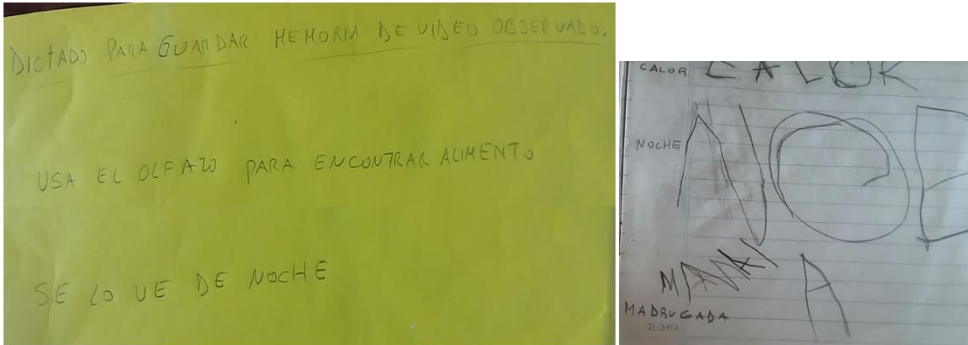 DICTADO PARA GUARDAR MEMORIA DE VIDEO OBSERVADO.
USA EL OLFATO PARA ENCONTRAR ALIMENTO
SE LO VE DE NOCHE
CALOR CALOR
NOCHE NO
MADRUGADA A